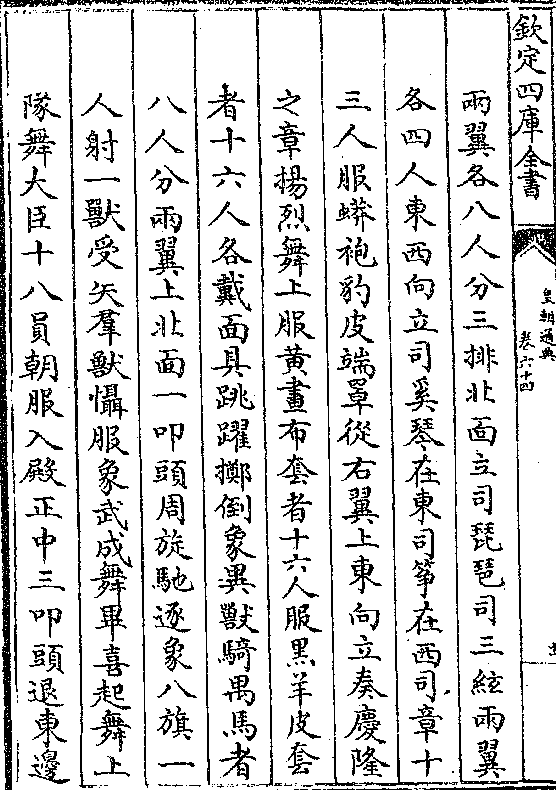 欽定四庫全書
皇朝通典
卷六十四
兩翼各八人分三排北面立司琵琶司三絃兩翼
各四人東西向立司奚琴在東司箏在西司章十
三人服蟒袍豹皮端罩從右翼上東向立奏慶隆
之章揚烈舞上服黃畫布套者十六人服黑羊皮套
者十六人各戴面具跳躍擲倒象異獸騎禺馬者
八人分兩翼上北面一叩頭周旋馳逐象八旗一
人射一獸受矢羣獸懾服象武成舞畢喜起舞上
隊舞大臣十八員朝服入殿正中三叩頭退東邊